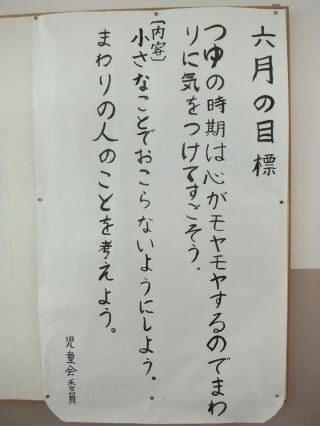 六月の目標
つゆの時期は心がモヤモヤするのでまわ
りに気をつけてすごそう。
〔内容〕
小さなことでおこらないようにしよう。
まわりの人のことを考えよう。
児童会委員